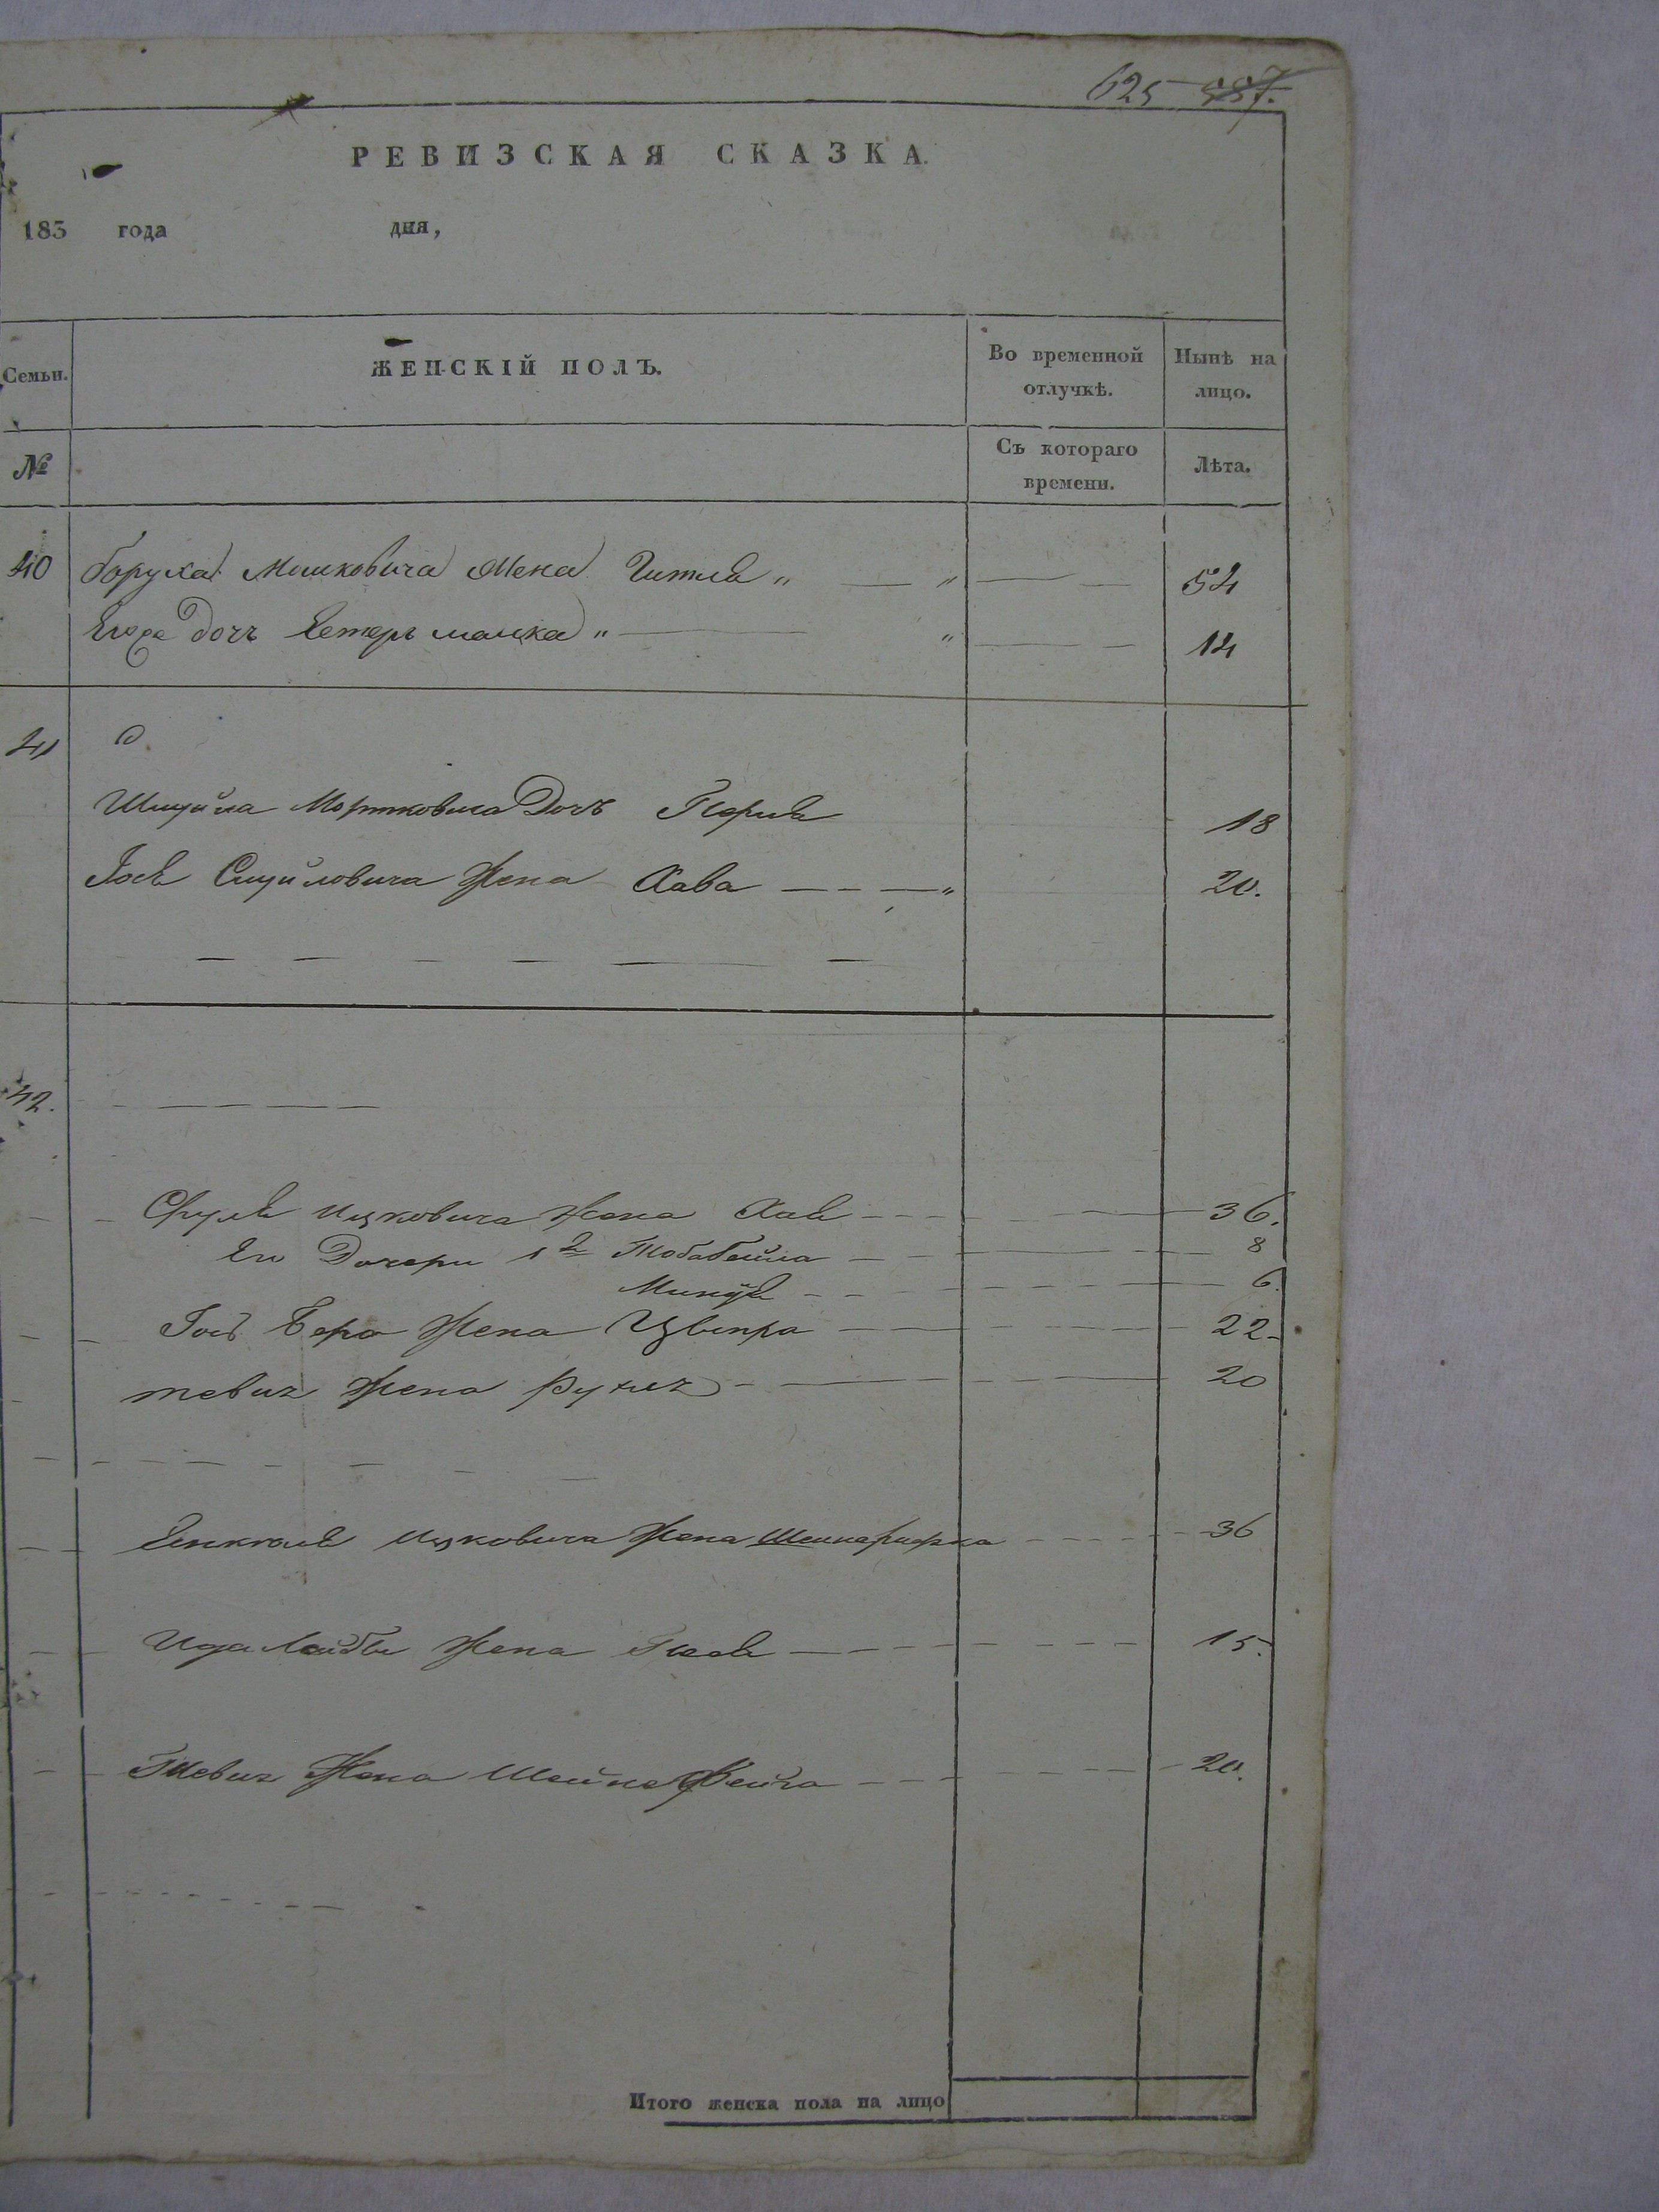 625 587.
РЕВИЗСКАЯ СКАЗКА.
183 года дня,
Семьи. ЖЕНСКІЙ ПОЛЪ. Во временной отлучкѣ. Нынѣ на лицо.
№ Съ котораго времени. Лѣта.
40 Боруха Мошковича Жена Гитля " — " — — 54
Его же дочь Естеръ малка " — " — — 14
41
Шмуйла Мортковича Дочь Перля 18
Іося Смуйловича Жена Хава — — — " 20.
42.
Сруля Ицковича Жена Хая 36.
Его Дочери 1я Тобабейла 8
Минця 6.
Іось Бера Жена Цвипра 22
тевич Жена Рухля 20
Янкеля Ицковича Жена Шейнарифка 36
Ида Лейбы Жена 15.
Тевич Жена Шейне Фейга 20.
Итого женска пола на лицо